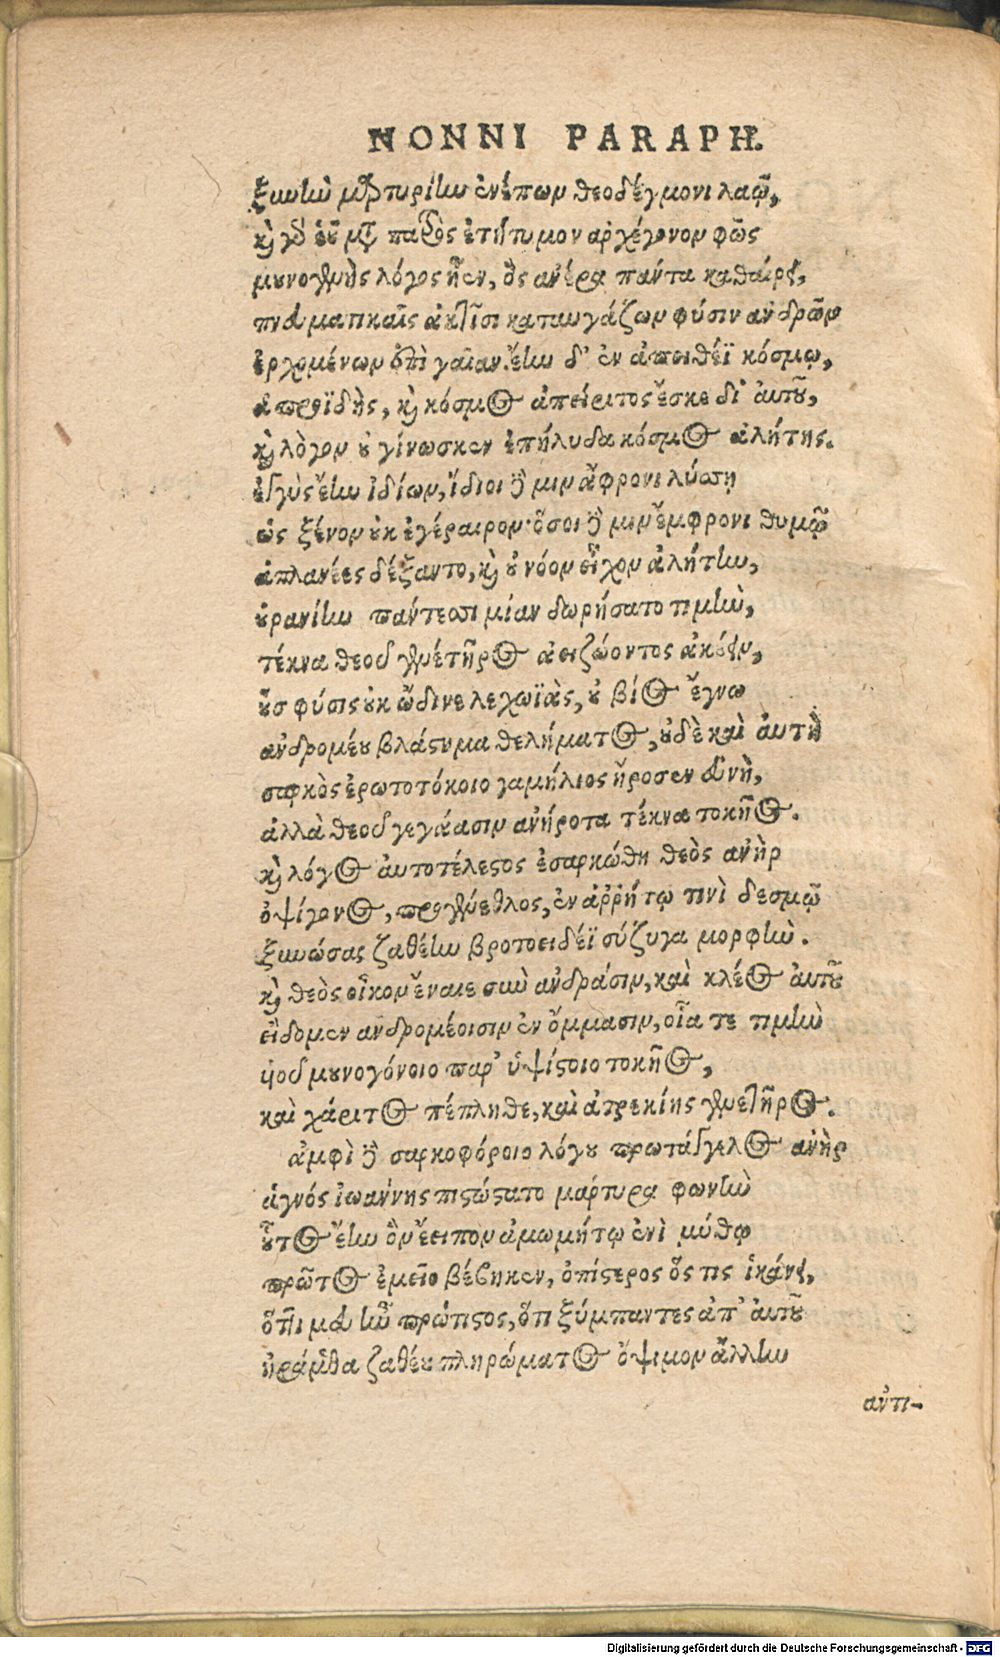 NONNI PARAPH.
ξυνὴν μαρτυρίην ἐνέπων θεοδέγμονι λαῷ,
καὶ γὰρ ἑοῦ μετὰ πατρὸς ἐτήτυμον ἀρχέγονον φῶς
μουνογενὴς λόγος ἦεν, ὃς ἀνέρα πάντα καθαίρει,
πνευματικαῖς ἀκτῖσι καταυγάζων φύσιν ἀνδρῶν
ἐρχομένων ἐπὶ γαῖαν. ἔην δ' ἐν ἀπειθέϊ κόσμῳ,
ἀπροϊδὴς, καὶ κόσμος ἀπείριτος ἔσκε δι' αὐτοῦ,
καὶ λόγον οὐ γίνωσκεν ἐπήλυδα κόσμος ἀλήτης.
ἐγγὺς ἔην ἰδίων, ἴδιοι δέ μιν ἄφρονι λύσσῃ
ὡς ξένον οὐκ ἐγέραιρον· ὅσοι δέ μιν ἔμφρονι θυμῷ
ἀπλανέες δέξαντο, καὶ οὐ νόον εἶχον ἀλήτην,
οὐρανίην πάντεσσι μίαν δωρήσατο τιμὴν,
τέκνα θεοῦ γενετῆρος ἀειζώοντος ἀκούειν,
οὓς φύσις οὐκ ὤδινε λεχωϊὰς, οὐ βίος ἔγνω
ἀνδρομέου βλάστημα θελήματος, οὐδὲ καὶ αὐτὴ
σαρκὸς ἐρωτοτόκοιο γαμήλιος ἤροσεν εὐνὴ,
ἀλλὰ θεοῦ γεγάασιν ἀνήροτα τέκνα τοκῆος.
καὶ λόγος αὐτοτέλεστος ἐσαρκώθη θεὸς ἀνὴρ
ὀψίγονος, προγένεθλος, ἐν ἀῤῥήτῳ τινὶ δεσμῷ
ξυνώσας ζαθέην βροτοειδέϊ σύζυγα μορφὴν.
καὶ θεὸς οἶκον ἔναιε σὺν ἀνδράσιν, καὶ κλέος αὐτοῦ
εἴδομεν ἀνδρομέοισιν ἐν ὄμμασιν, οἷά τε τιμὴν
υἱοῦ μουνογόνοιο παρ' ὑψίστοιο τοκῆος,
καὶ χάριτος πέπληθε, καὶ ἀτρεκίης γενετῆρος.
ἀμφὶ δὲ σαρκοφόροιο λόγου πρωτάγγελος ἀνὴρ
ἁγνός ἰωάννης πιστώσατο μάρτυρα φωνὴν
οὗτος ἔην ὃν ἔειπον ἀμωμήτῳ ἐνὶ μύθῳ
πρῶτος ἐμεῖο βέβηκεν, ὀπίστερος ὅς τις ἱκάνει,
ὅττι μευ ἦν πρώτιστος, ὅτι ξύμπαντες ἀπ' αὐτοῦ
ἠράμεθα ζαθέου πληρώματος ὄψιμον ἄλλην
ἀντι-
Digitalisierung gefördert durch die Deutsche Forschungsgemeinschaft - DFG